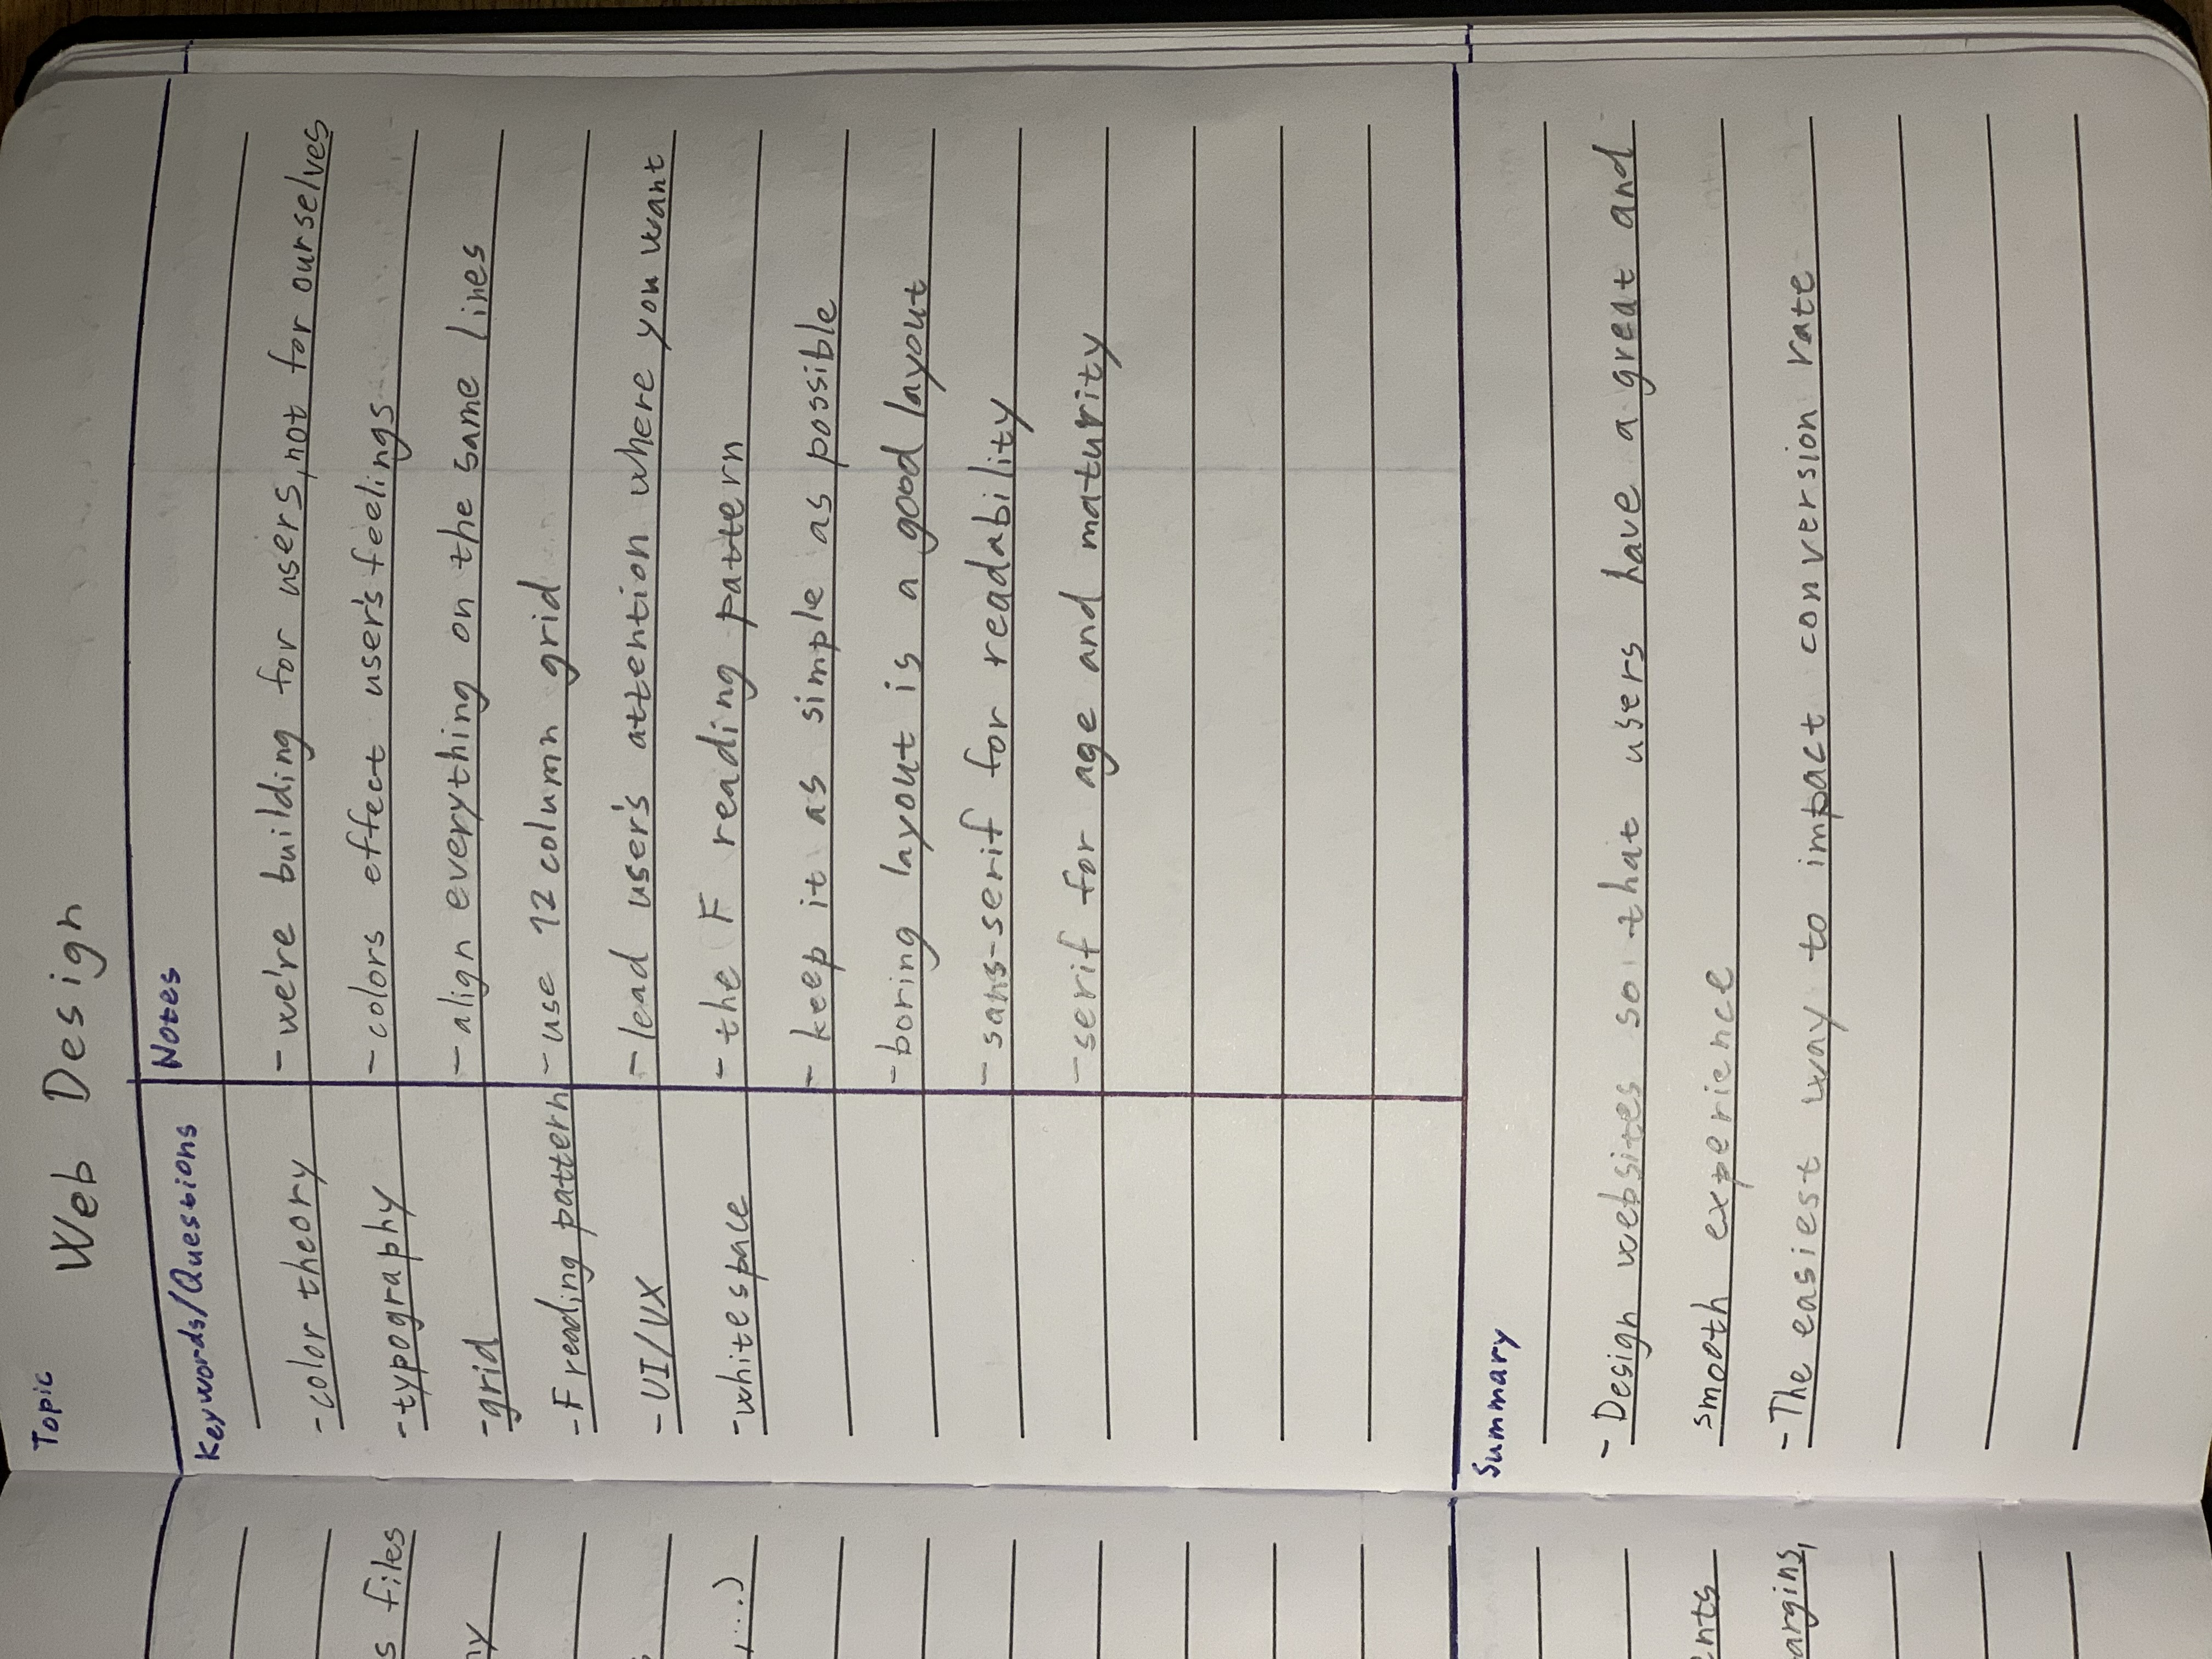 Topic
Web Design
Keywords/Questions
- color theory
- typography
- grid
- F reading pattern
- UI/UX
- whitespace
Notes
- we're building for users, not for ourselves
- colors effect user's feelings
- align everything on the same lines
- use 12 column grid
- lead user's attention where you want
- the F reading pattern
- keep it as simple as possible
- boring layout is a good layout
- sans-serif for readability
- serif for age and maturity
Summary
- Design websites so that users have a great and
smooth experience
- The easiest way to impact conversion rate
s files
,...)